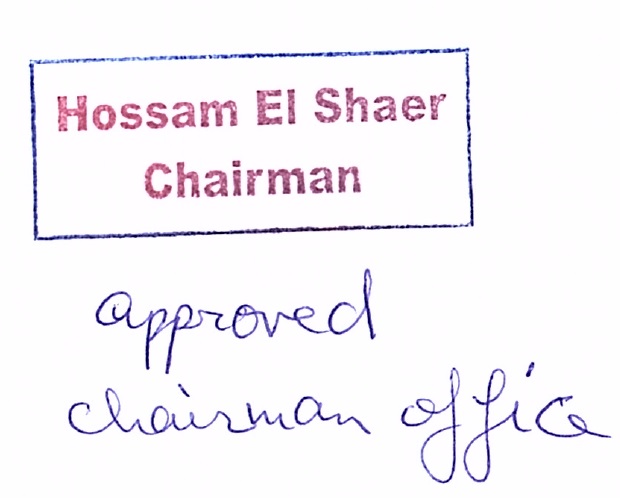 Hossam El Shaer
Chairman
approved
chairman office